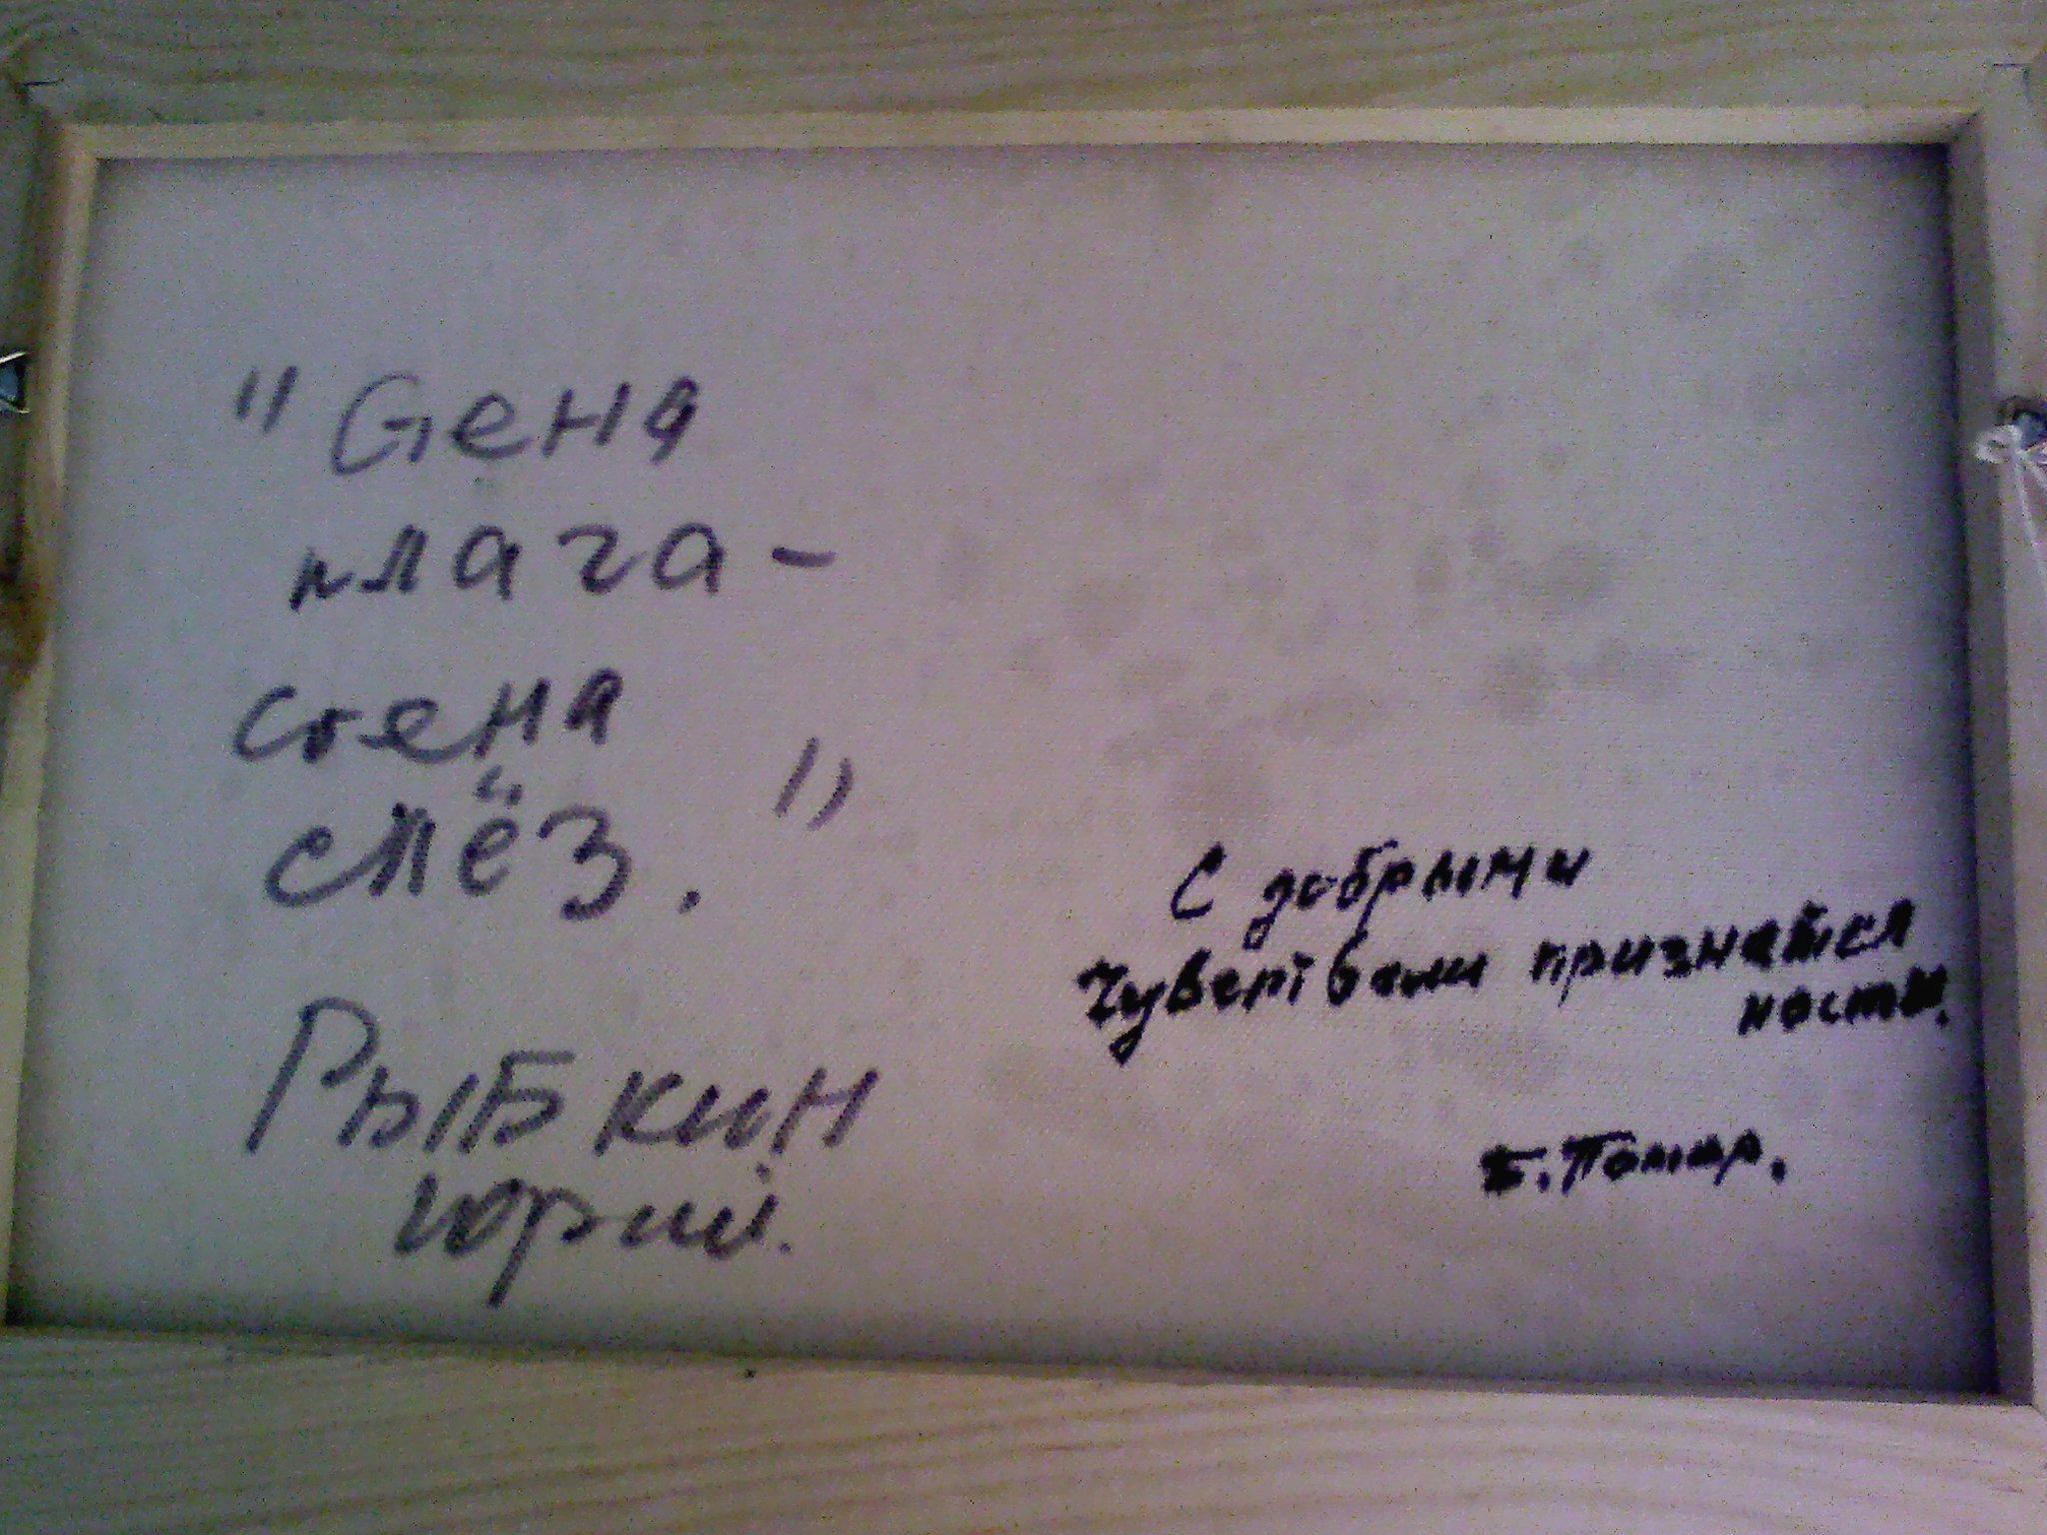 "Стена
плача -
стена
слёз."
Рыбкин
Юрий.
С добрыми
чувствами признатель
ности.